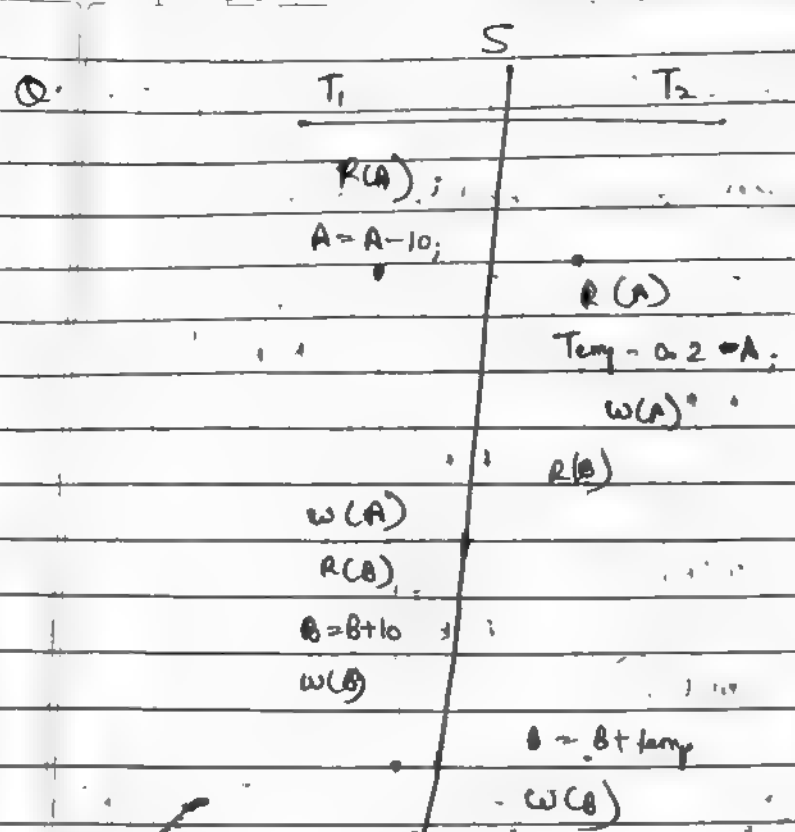 S
Q. T₁ T₂
R(A);
A = A-10;
R(A)
Temp = 0.2 * A;
W(A)
R(B)
W(A)
R(B)
B = B+10
W(B)
B = B + temp
W(B)